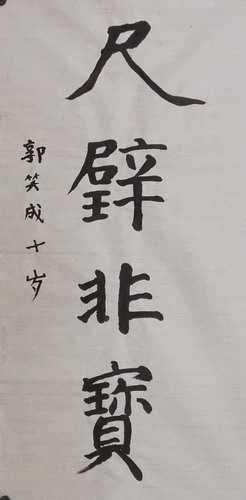 尺璧非寶
郭笑成十岁